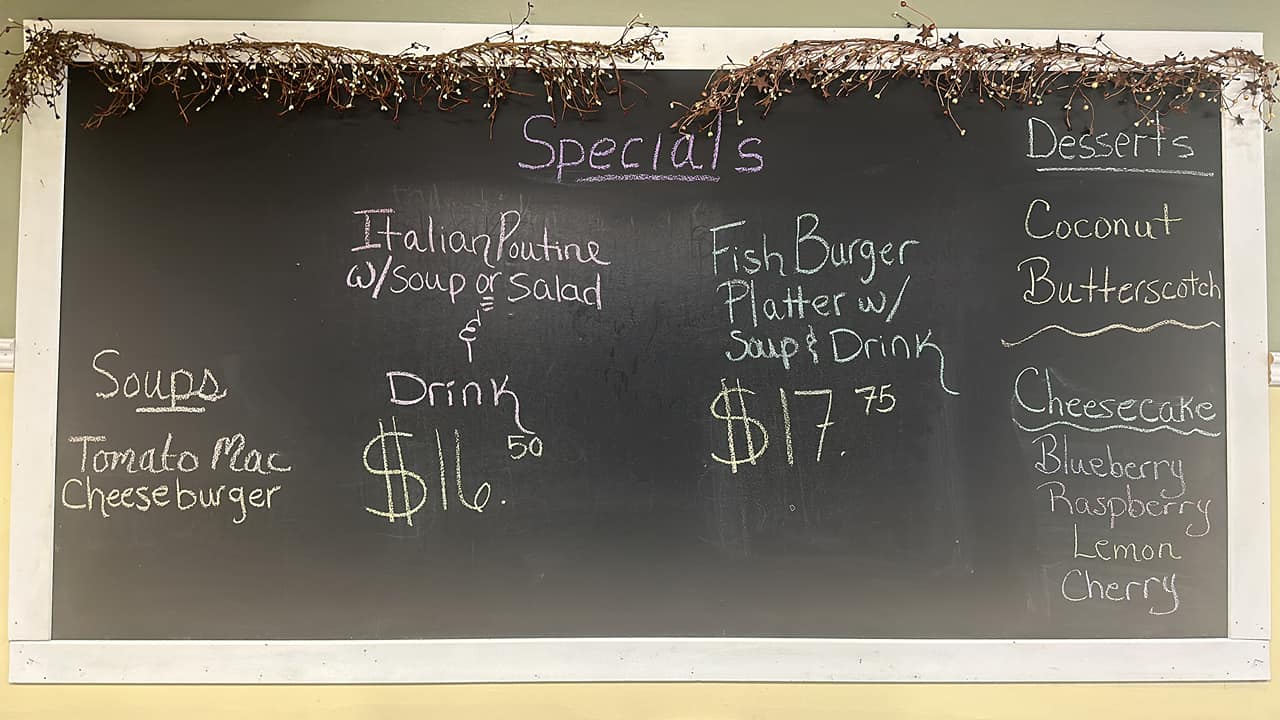 Specials
Soups
Tomato Mac
Cheeseburger
Italian Poutine
w/soup or salad
&
Drink
$16.50
Fish Burger
Platter w/
Soup & Drink
$17.75
Desserts
Coconut
Butterscotch
Cheesecake
Blueberry
Raspberry
Lemon
Cherry